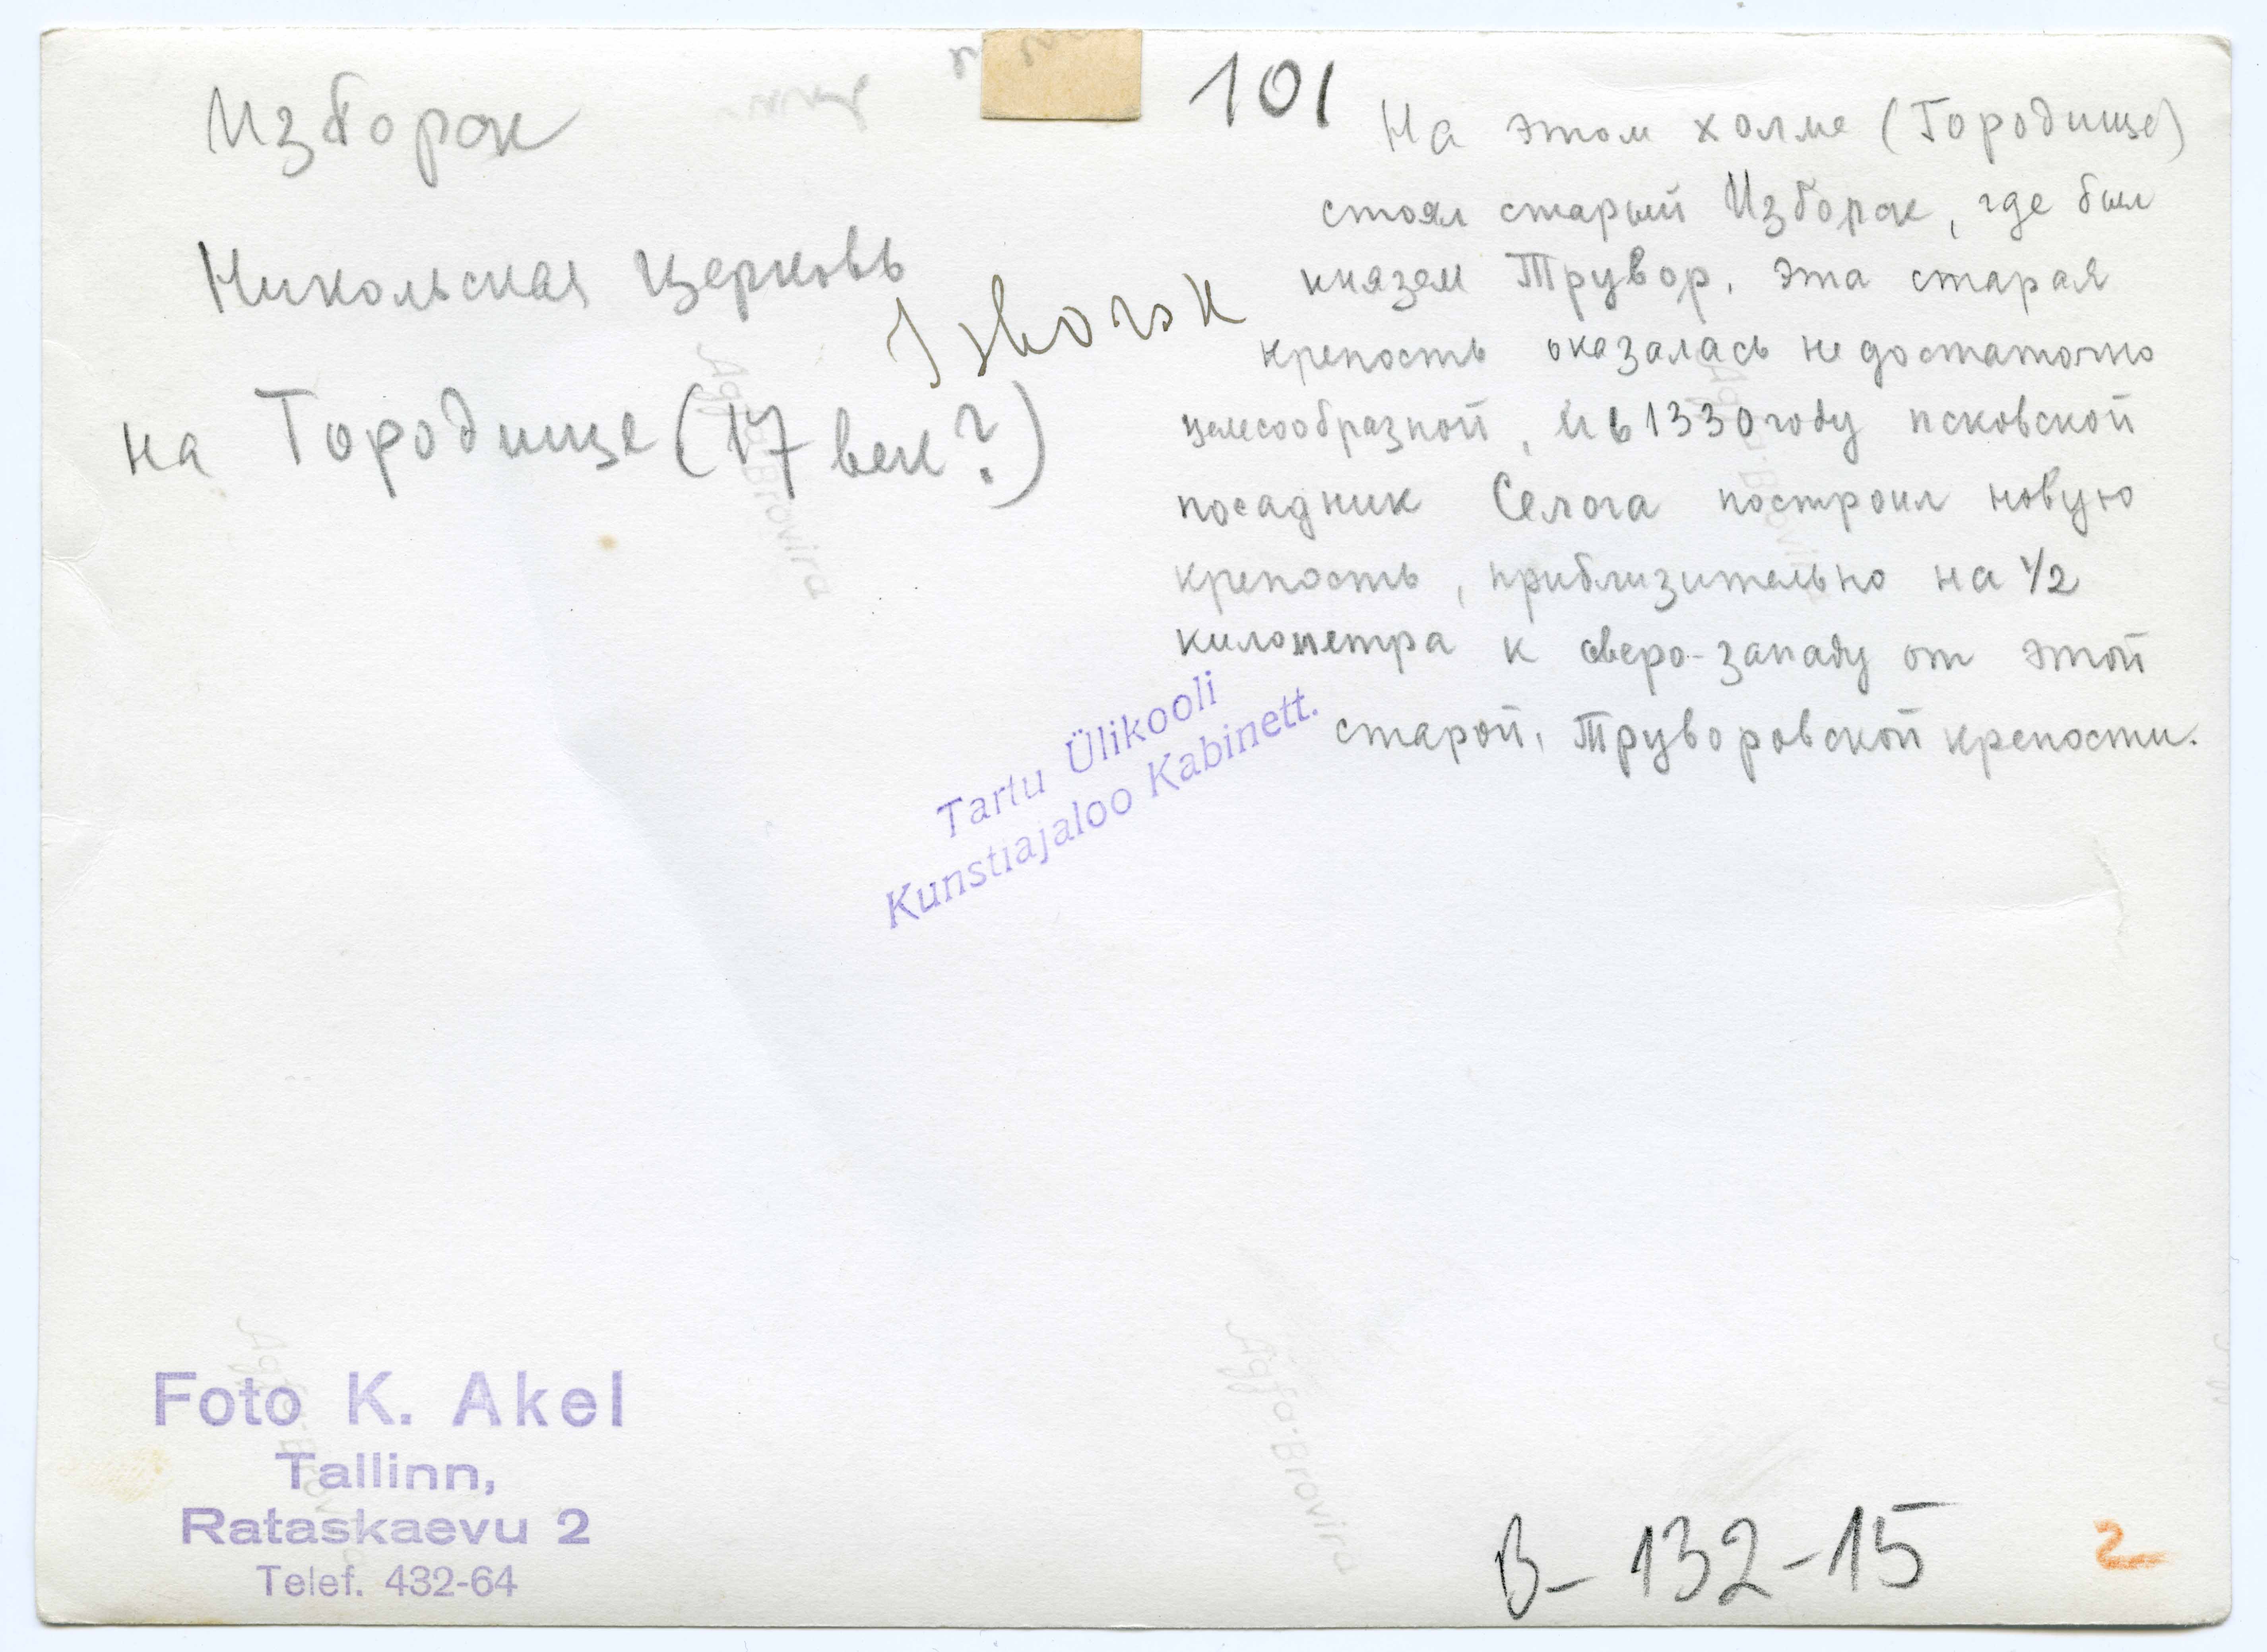 Изборск
Никольская церковь
на Городище (17 век?)
Isborsk
101
На этом холме (Городище)
стоял старый Изборск, где был
князем Трувор. Эта старая
крепость оказалась недостаточно
целесообразной, и в 1330 году псковской
посадник Селога построил новую
крепость, приблизительно на 1/2
километра к северо-западу от этой
старой, Труворовской крепости.
Tartu Ülikooli
Kunstiajaloo Kabinett.
Foto K. Akel
Tallinn,
Rataskaevu 2
Telef. 432-64
B-132-15
2
Agfa-Brovira
Agfa-Brovira
Agfa-Brovira
Agfa-Brovira